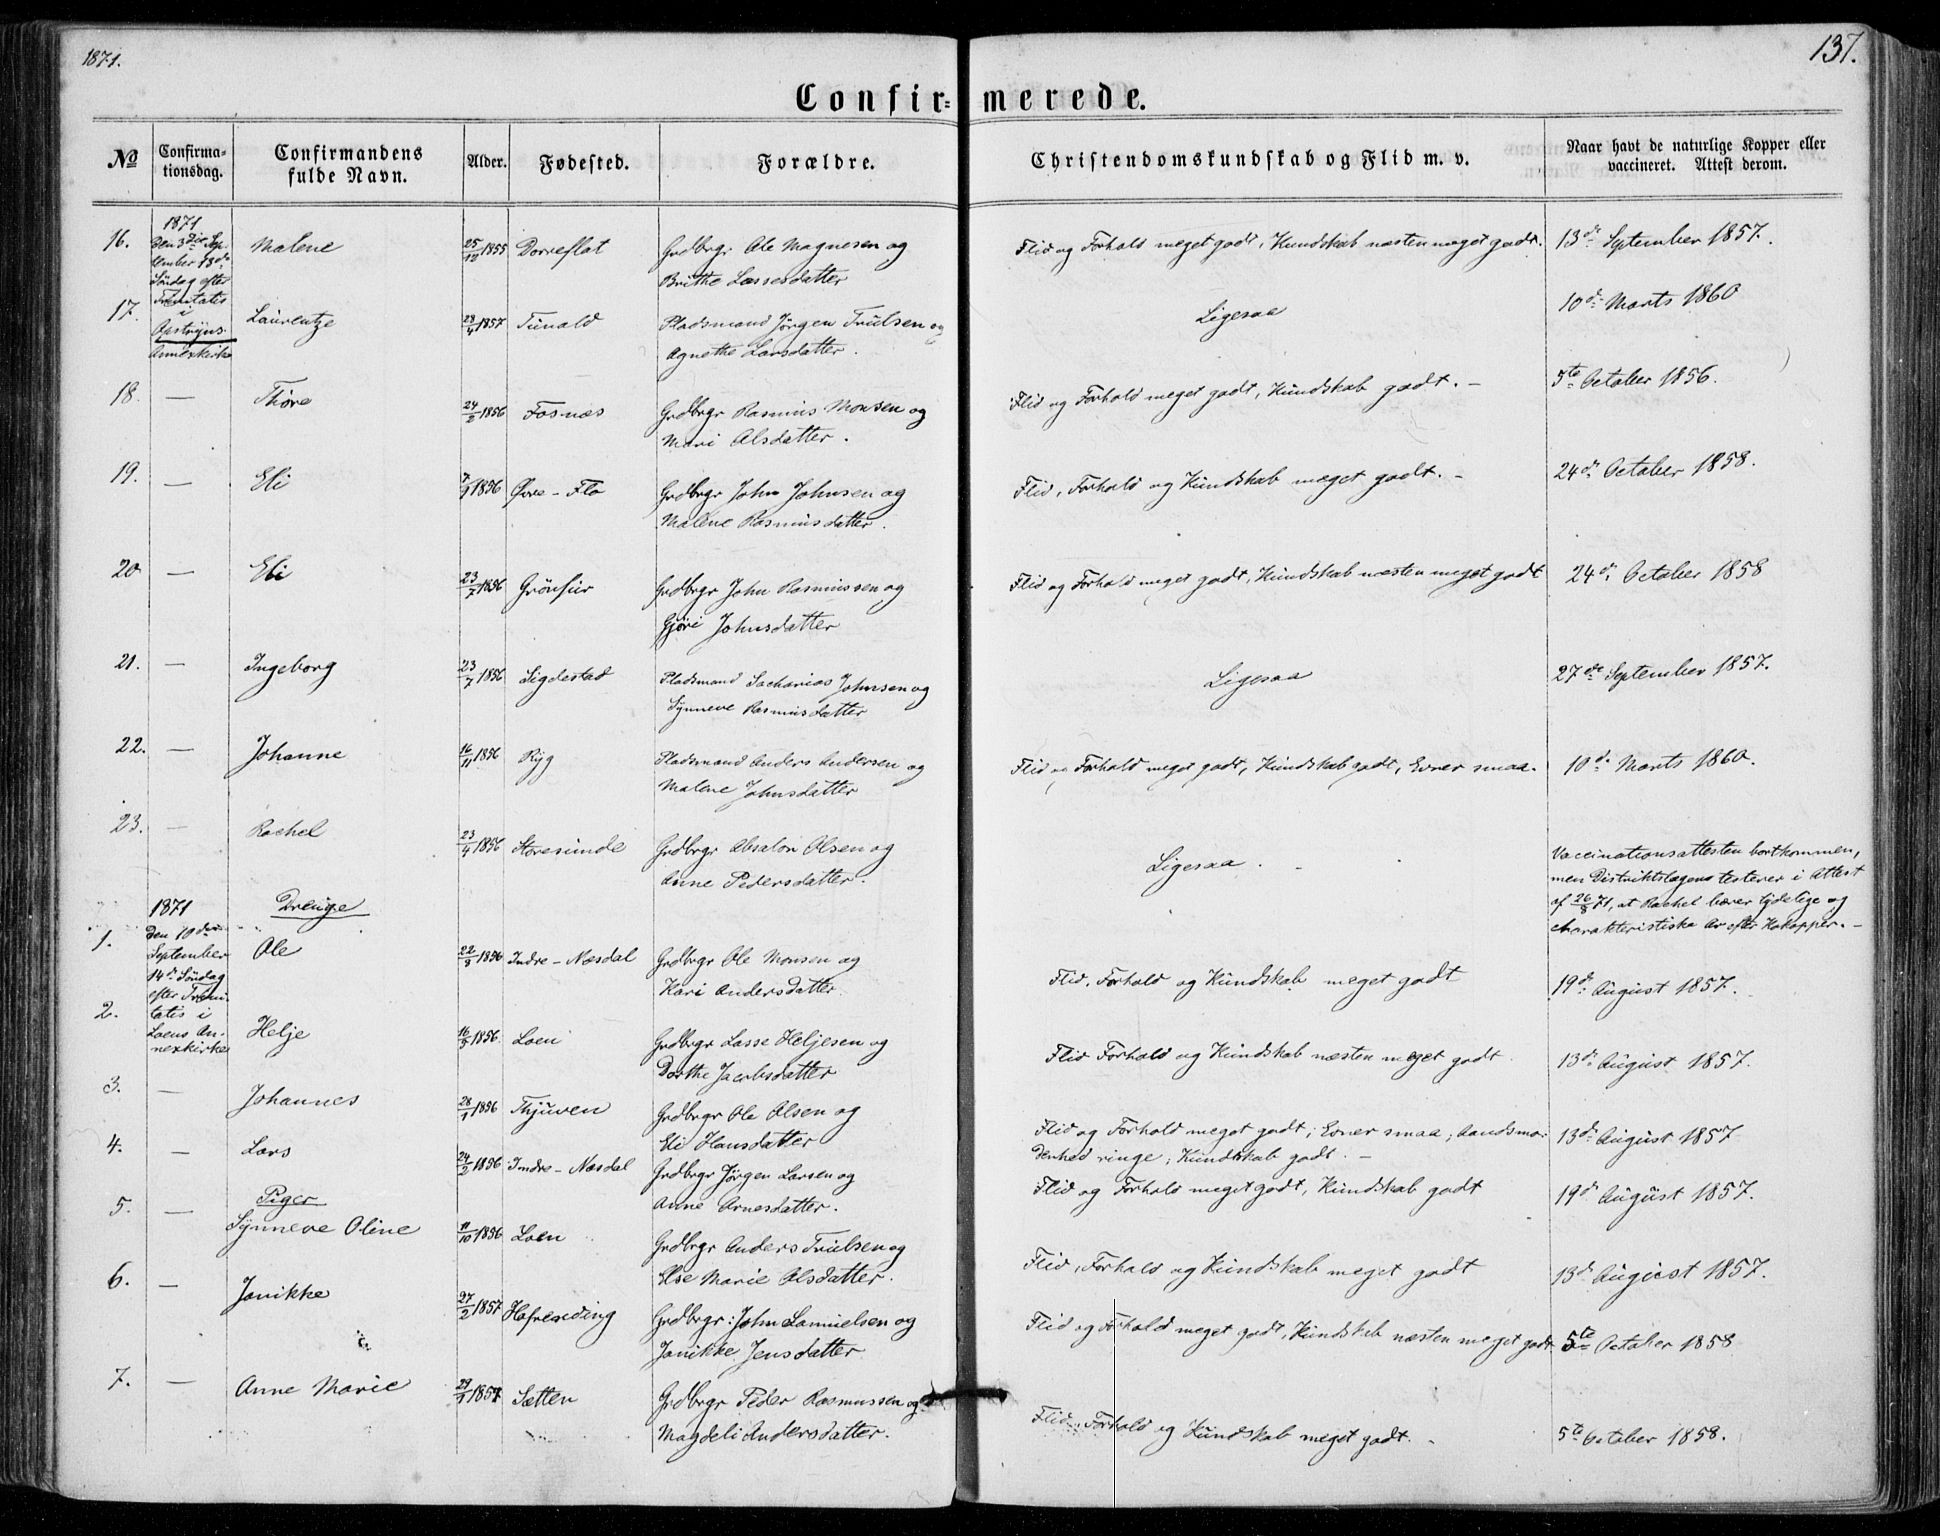 1871.
137.
Confir= merede.
No
Confirma-
tionsdag.
Confirmandens
fulde Navn.
Alder.
Fødested.
Forældre.
Christendomskundskab og Flid m. v.
Naar havt de naturlige Kopper eller
vaccineret. Attest derom.
1871
Den 3die Sep-
tember 13de
Søndag efter
Trinitatis
i
Opstryns
Annexkirke
16. Malene 25/12 1855 Dorreflat Grdbrgr Ole Magnesen og
Brithe Lassesdatter
Flid og Forhold meget godt, Kundskab næsten meget godt. 13de September 1857.
17. Laurentze 28/4 1857 Tunald Pladsmand Jørgen Trulsen og
Agnethe Larsdatter.
Ligesaa 10de Marts 1860
18. — Thøre 24/2 1856 Fosnæs Grdbrgr Rasmus Monsen og
Mari Olsdatter.
Flid og Forhold meget godt, Kundskab godt. – 5te October 1856.
19. — Eli 7/9 1856 Øvre-Flo Grdbrgr John Johnsen og
Malene Rasmusdatter.
Flid, Forhold og Kundskab meget godt. – 24de October 1858.
20 — Eli 23/7 1856 Grönfur Grdbrgr John Rasmussen og
Gjöri Johnsdatter
Flid og Forhold meget godt, Kundskab næsten meget godt 24de October 1858
21. — Ingeborg 23/7 1856 Sigdestad Pladsmand Sacharias Johnsen og
Synneve Rasmusdatter
Ligesaa 27de September 1857.
22. — Johanne 16/11 1856 Ryg Pladsmand Anders Andersen og
Malene Johnsdatter
Flid og Forhold meget godt, Kundskab godt, Evner smaa. 10de Marts 1860.
23. — Rachel 23/4 1856 Storesunde Grdbrgr Absalon Olsen og
Anne Pedersdatter.
Ligesaa. –
Vaccinationsattesten bortkommen,
men Distriktslægens testerer i Attest
af 26/8 71, at Rachel bærer tydelige og
charakteristiske Ar efter Kokopper. –
1871
Den 10de
September
14de Söndag
efter Trini-
tatis i
Loens An-
nexkirke
Drenge
1. Ole 22/3 1856 Indre-Næsdal Grdbrgr Ole Monsen og
Kari Andersdatter.
Flid, Forhold og Kundskab meget godt 19de August 1857.
2. Helje 16/5 1856. Loen Grdbrgr Lasse Heljesen og
Dorthe Jacobsdatter
Flid Forhold og Kundskab næsten meget godt. 13de August 1857.
3. — Johannes 28/1 1856 Thjuven Grdbrgr Ole Olsen og
Eli Hansdatter
Flid og Forhold meget godt; Evner smaa; Aandsmo-
denhed ringe; Kundskab godt. – 13de August 1857
4. — Lars 24/2 1856 Indre-Næsdal Grdbrgr Jörgen Larsen og
Anne Arnesdatter.
Flid og Forhold meget godt, Kundskab godt 19de August 1857.
Piger
5. — Synneve Oline 11/10 1856 Loen Grdbrgr Anders Trulsen og
Else Marie Olsdatter.
Flid, Forhold og Kundskab meget godt 13de August 1857.
6. — Janikke 27/2 1857 Hafreseding Grdbrgr: John Samuelsen og
Janikke Jensdatter
Flid og Forhold meget godt, Kundskab næsten meget godt 5te October 1858
7. — Anne Marie 29/1 1857 Sætten Grdbrgr Peder Rasmussen og
Magdeli Andersdatter.
Flid, Forhold og Kundskab meget godt. – 5te October 1858.